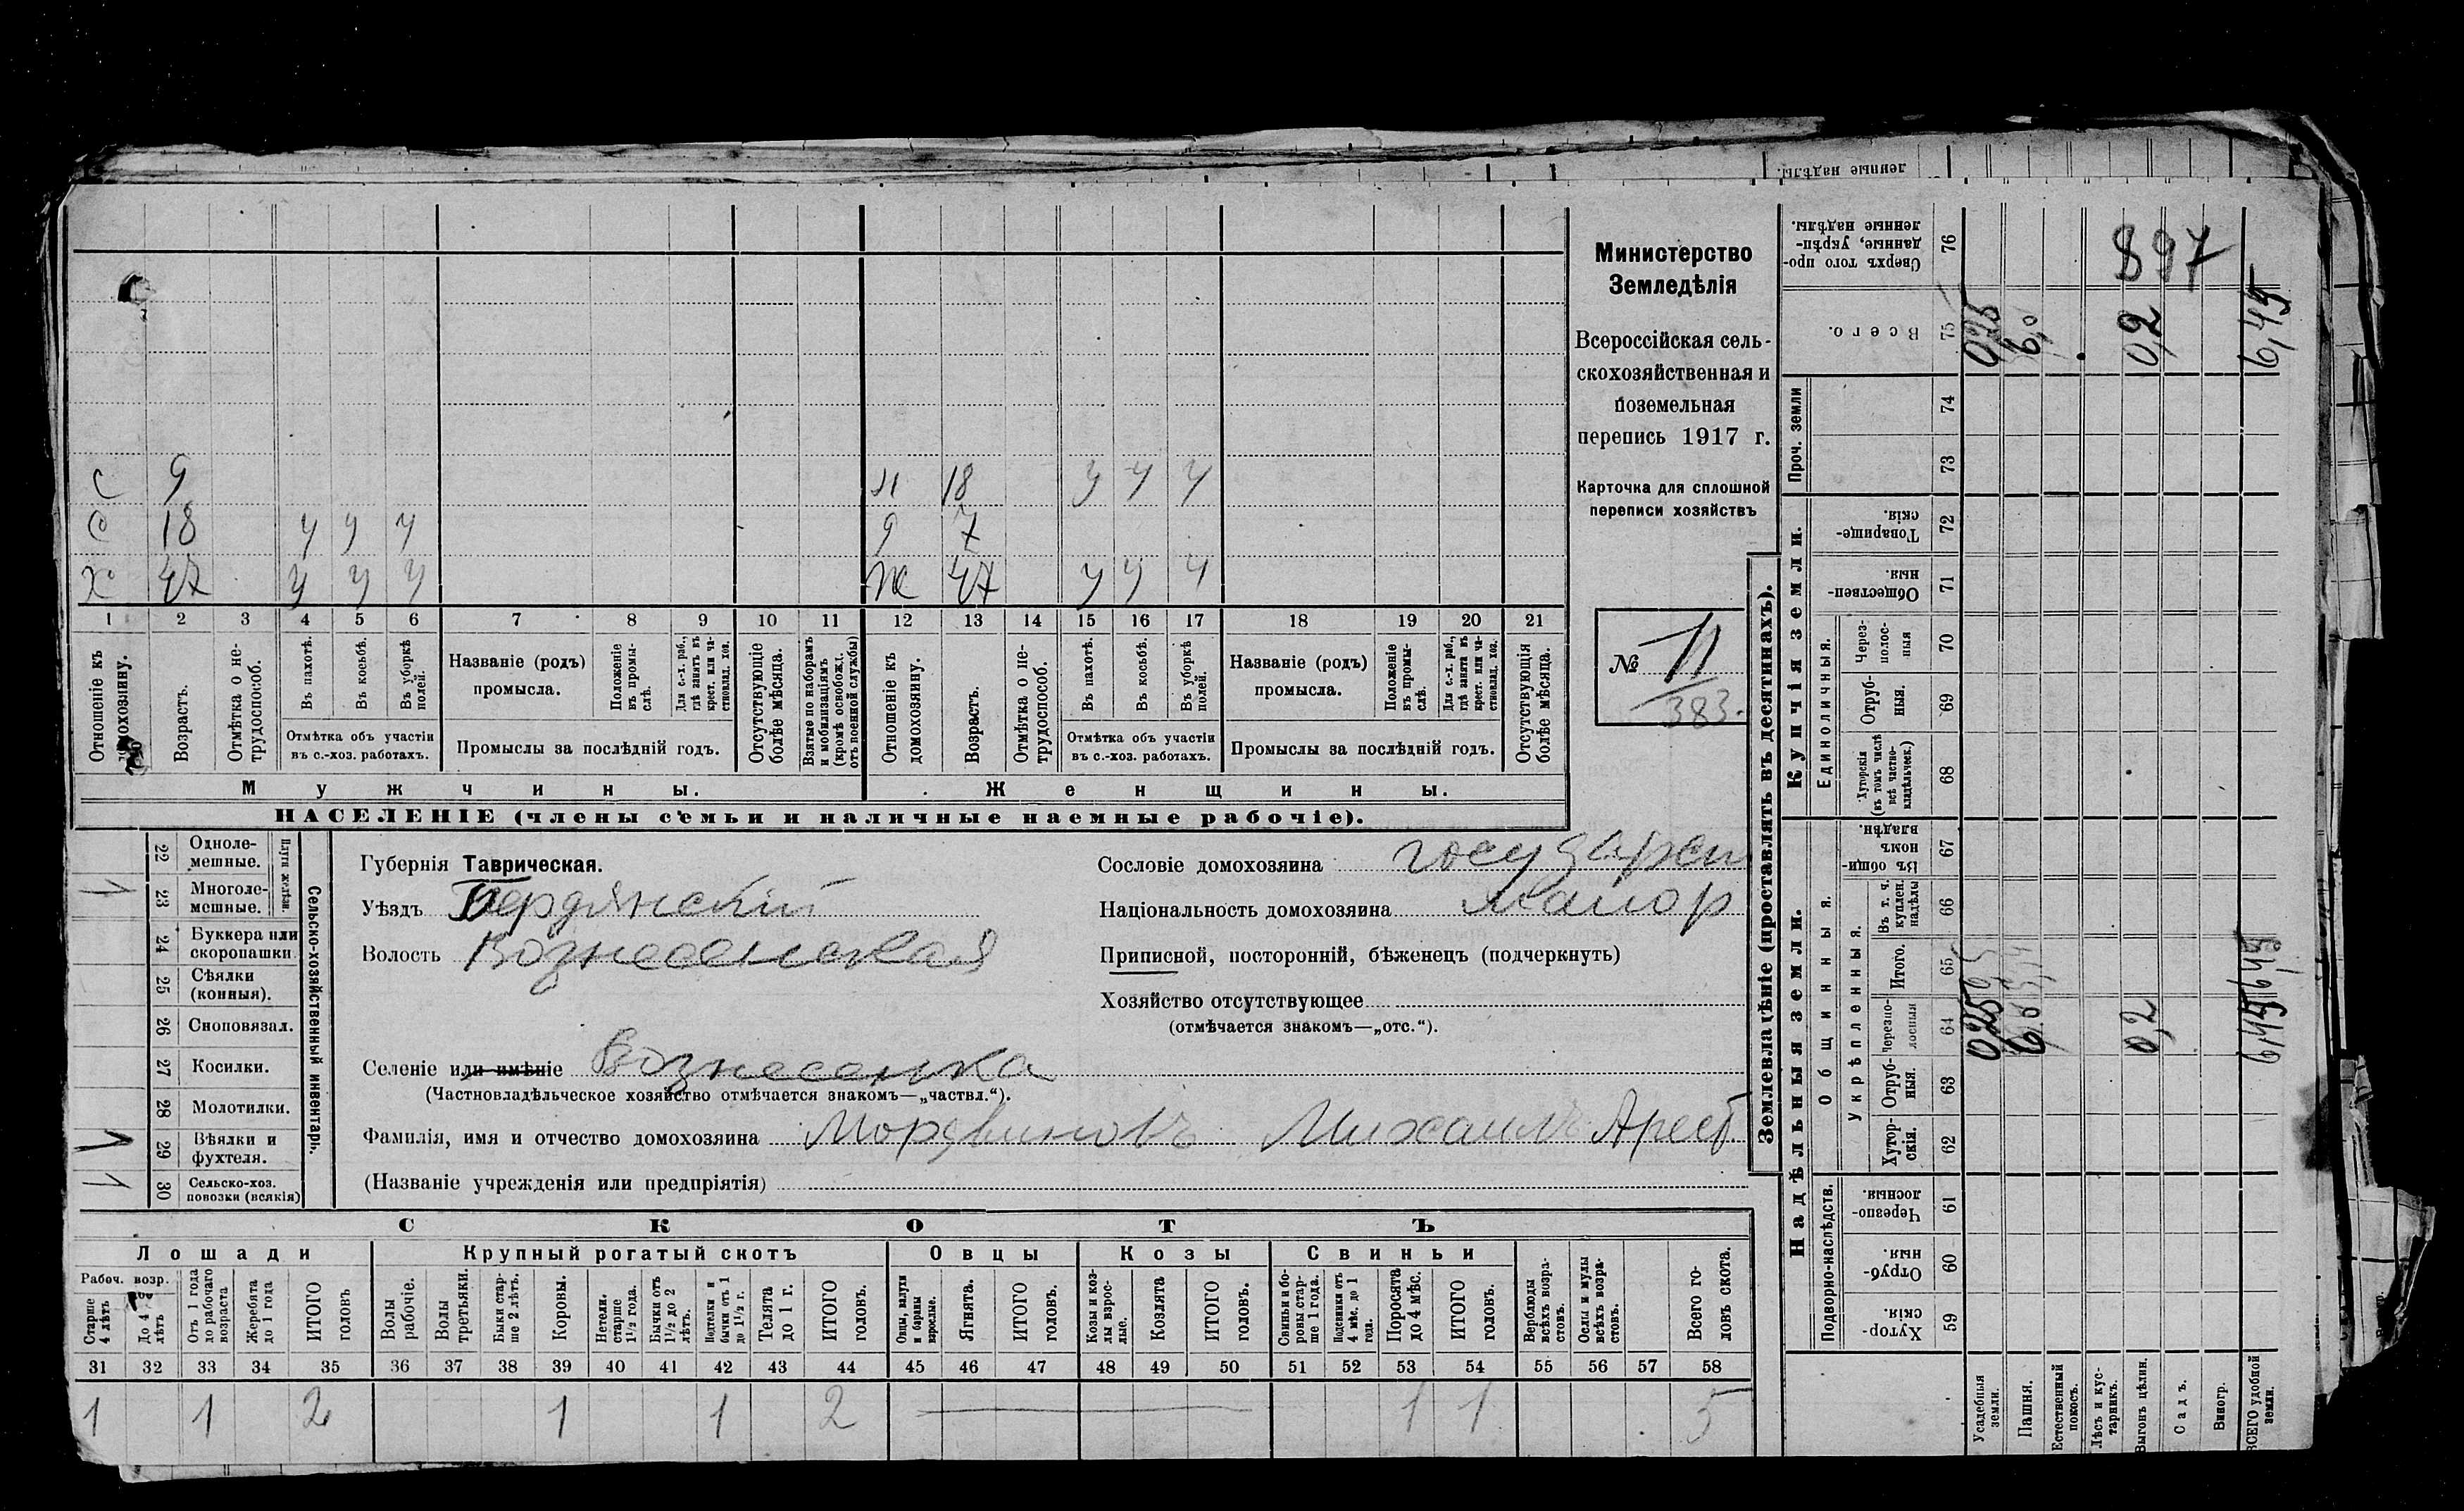 ленные надѣлы.
с 9 н 18 у у у
с 18 у у у 9 7
х 47 у у у ж 47 у у у
1 2 3 4 5 6 7 8 9 10 11 12 13 14 15 16 17 18 19 20 21
Отношеніе къ домохозяину.
Возрастъ.
Отмѣтка о нетрудоспособ.
Въ пахотѣ.
Въ косьбѣ.
Въ уборкѣ полей.
Отмѣтка объ участіи въ с.-хоз. работахъ.
Названіе (родъ) промысла.
Положеніе въ промыслѣ.
Для с.-х. раб., гдѣ занятъ въ крест. или частновлад. хоз.
Промыслы за послѣдній годъ.
Отсутствующіе болѣе мѣсяца.
Взятые по наборамъ и мобилизаціямъ (кромѣ освобожд. отъ военной службы)
Отношеніе къ домохозяину.
Возрастъ.
Отмѣтка о нетрудоспособ.
Въ пахотѣ.
Въ косьбѣ.
Въ уборкѣ полей.
Отмѣтка объ участіи въ с.-хоз. работахъ.
Названіе (родъ) промысла.
Положеніе въ промыслѣ.
Для с.-х. раб., гдѣ занята въ крест. или частновлад. хоз.
Промыслы за послѣдній годъ.
Отсутствующія болѣе мѣсяца.
Мужчины. Женщины.
НАСЕЛЕНІЕ (члены семьи и наличные наемные рабочіе).
Министерство
Земледѣлія
Всероссійская сель-
скохозяйственная и
поземельная
перепись 1917 г.
Карточка для сплошной
переписи хозяйствъ
№ 11
383.
22 Однолемешные.
1 23 Многолемешные.
Плуги желѣзн.
24 Буккера или скоропашки
25 Сѣялки (конныя).
26 Сноповязал.
27 Косилки.
28 Молотилки.
1 29 Вѣялки и фухтеля.
1 30 Сельско-хоз. повозки (всякія)
Сельско-хозяйственный инвентарь.
Губернія Таврическая.
Уѣздъ Бердянскій
Волость Вознесенская
Селеніе или имѣніе Вознесенка
(Частновладѣльческое хозяйство отмѣчается знакомъ—„частвл.“).
Фамилія, имя и отчество домохозяина Мордвиновъ Михаилъ Ареф.
(Названіе учрежденія или предпріятія)
Сословіе домохозяина государст
Національность домохозяина малор
Приписной, посторонній, бѣженецъ (подчеркнуть)
Хозяйство отсутствующее
(отмѣчается знакомъ—„отс.“).
СКОТЪ
Лошади Крупный рогатый скотъ Овцы Козы Свиньи
Рабоч. возр.
Старше 4 лѣтъ
До 4 лѣтъ
Отъ 1 года до рабочаго возраста
Жеребята до 1 года
ИТОГО головъ
Волы рабочіе.
Волы третьяки.
Быки старше 2 лѣтъ.
Коровы.
Нетели. старше 1½ года.
Бычки отъ 1½ до 2 лѣтъ.
Подтелки и бычки отъ 1 до 1½ г.
Телята до 1 г.
ИТОГО головъ.
Овцы, валухи и бараны взрослые.
Ягнята.
ИТОГО головъ.
Козы и козлы взрослые.
Козлята
ИТОГО головъ.
Свиньи и боровы старше 1 года.
Подсвинки отъ 4 мѣс. до 1 года.
Поросята до 4 мѣс.
ИТОГО головъ.
Верблюды всѣхъ возрастовъ.
Ослы и мулы всѣхъ возрастовъ.
Всего головъ скота.
31 32 33 34 35 36 37 38 39 40 41 42 43 44 45 46 47 48 49 50 51 52 53 54 55 56 57 58
1 1 2 1 1 2 1 1 5
Землевладѣніе (проставлять въ десятинахъ).
Надѣльныя земли. Купчія земли. Проч. земли
Подворно-наслѣдств. Общинныя. Укрѣпленныя. Единоличныя.
Сверхъ того проданные, укрѣпленные надѣлы. 76 897
Всего. 75 0,25 6,0 0,2 6,45
74
73
Товарищескія. 72
Общественныя. 71
Черезполосныя 70
Отрубныя. 69
Хуторскія (въ томъ числѣ всѣ частновладѣльческ.) 68
Въ общинномъ владѣн. 67
Въ т. ч. куплен. надѣлы 66
Итого. 65
Черезполосныя 64 0,25 6,0 0,2 6,45
Отрубныя. 63
Хуторскія. 62
Черезполосныя. 61
Отрубныя. 60
Хуторскія. 59
Усадебныя земли.
Пашня.
Естественный покосъ.
Лѣсъ и кустарникъ.
Выгонъ цѣлин.
Садъ.
Виногр.
ВСЕГО удобной земли.